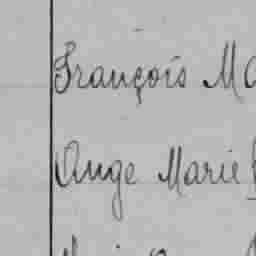 François Ma
Ange Marie